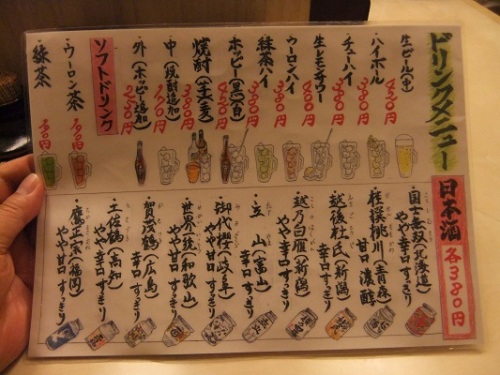 ドリンクメニュー
・生ビール(中)
・ハイボール
・チューハイ
・生レモンサワー
・ウーロンハイ 380円
・緑茶ハイ 380円
・ホッピー(黒)(白)
・焼酎(芋)(麦) 380円
・中(焼酎追加)
・外(ホッピー追加) 250円
ソフトドリンク
・ウーロン茶
・緑茶
日本酒 各380円
・国士無双(北海道)
やや辛口
・桂撰桃川(青森)
甘口 濃醇
・越後杜氏(新潟)
辛口 すっきり
・越乃白雁(新潟)
やや辛口 すっきり
・立山(富山)
辛口 すっきり
・御代櫻(岐阜)
やや辛口 すっきり
・世界一統(和歌山)
やや甘口 すっきり
・賀茂鶴(広島)
やや辛口 すっきり
・土佐鶴(高知)
辛口 すっきり
・鷹正宗(福岡)
やや甘口 すっきり